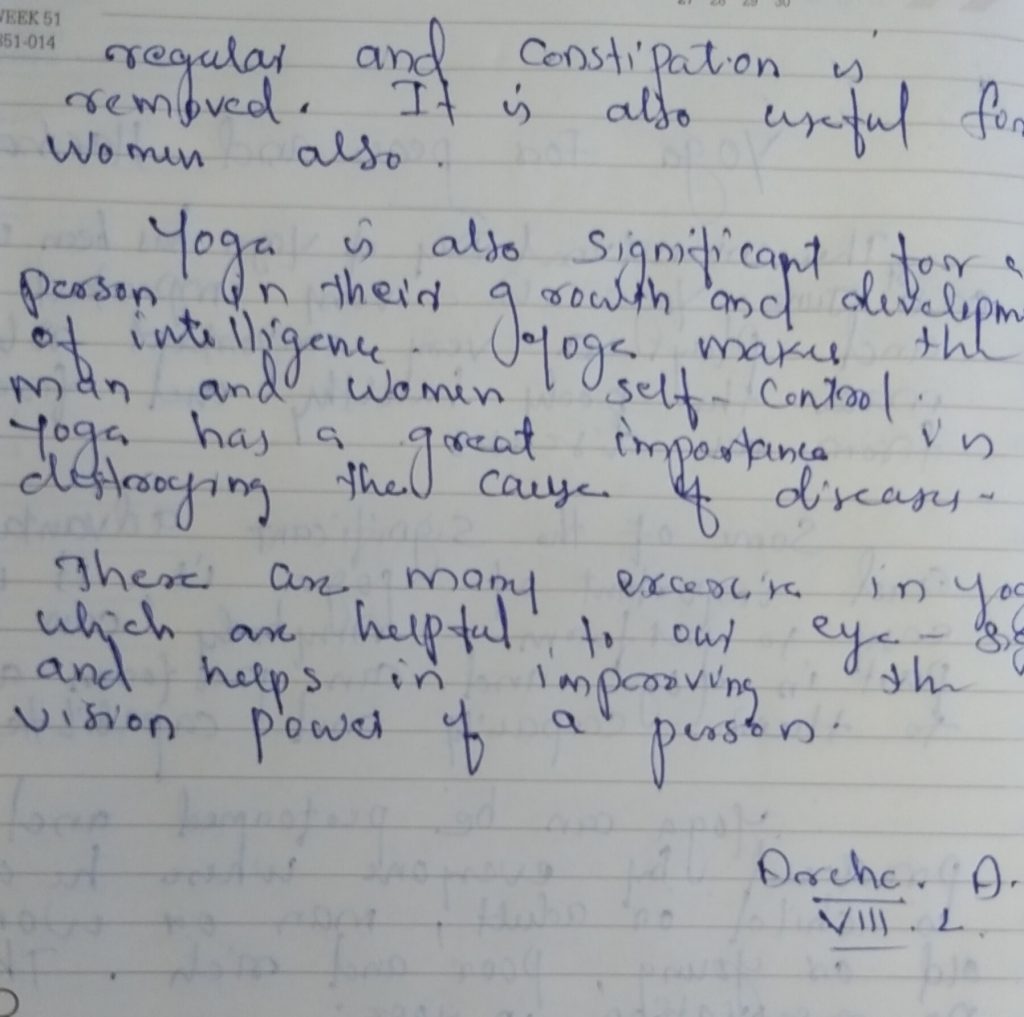 WEEK 51
351-014
regular and Constipation is
removed. It is also useful for
Women also.
Yoga is also significant for a
person in their growth and developm
of intelligence. Yoga makes the
man and women self-control.
Yoga has a great importance in
destroying the cause of diseases-
There are many excercise in Yog
which are helpful to our eye-sig
and helps in improoving the
vision power of a person.
A.
VIII.